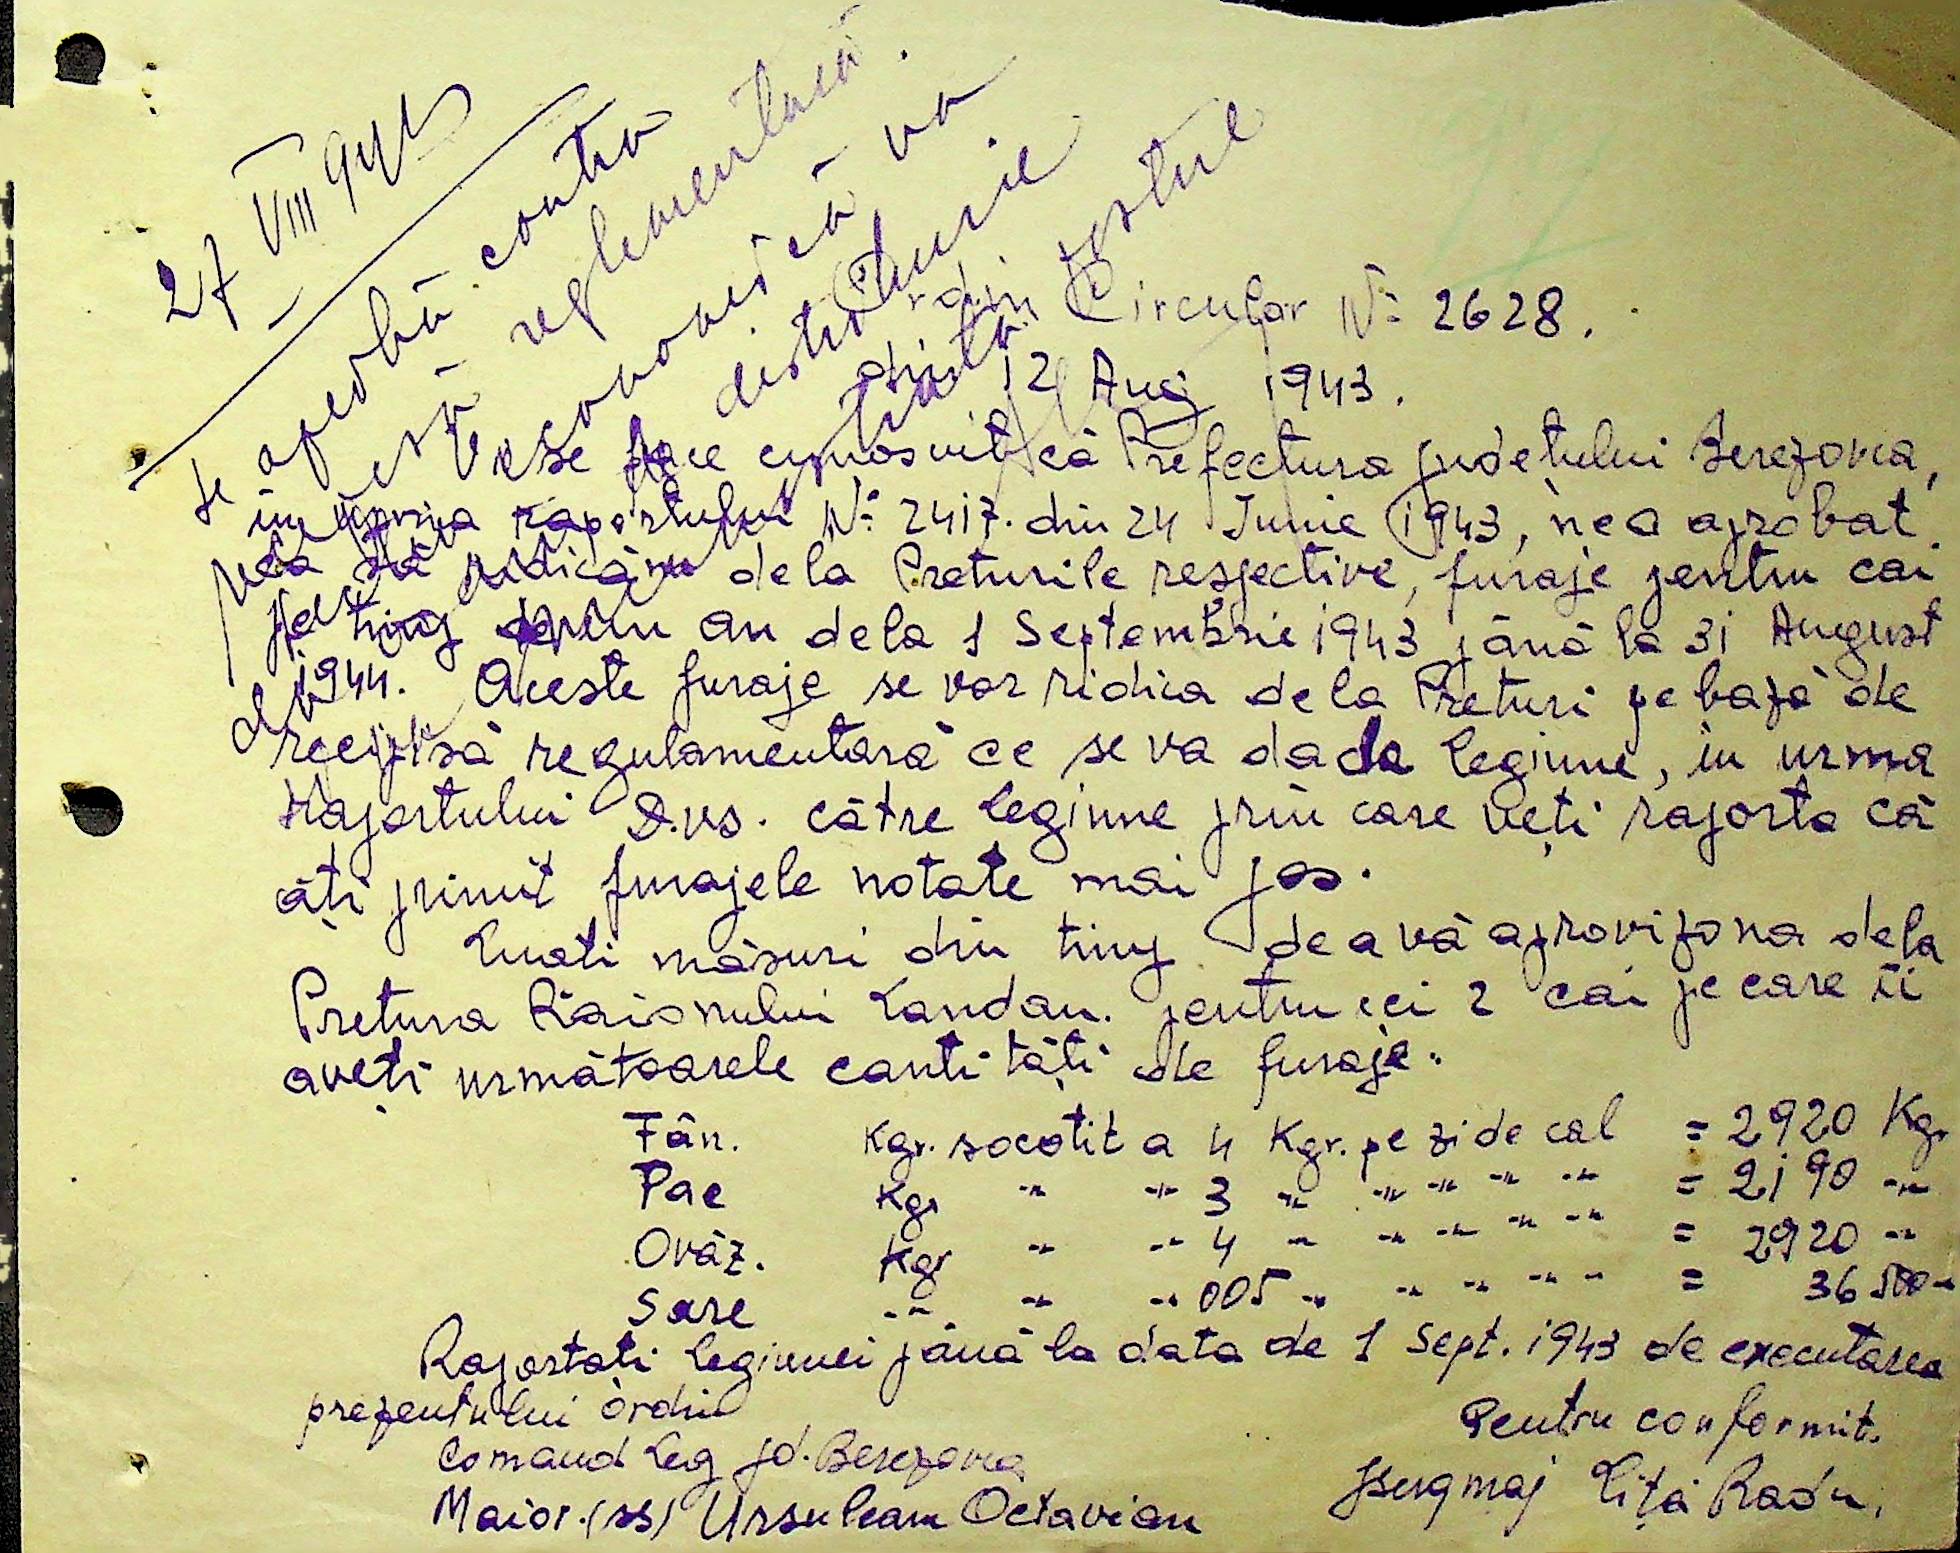 27 VIII 943
se aprobă contra
reglementară.
va
distribuție
Ordin Circular No 2628.
din 12 Aug 1943.
Vi se face cunoscut că Prefectura județului Berezovca,
în urma raportului No 2417. din 24 Iunie 1943, ne a aprobat
să ridicăm dela Preturile respective, furaje pentru cai
pe timp de un an dela 1 Septembrie 1943 până la 31 August
1944. Aceste furaje se vor ridica dela Preturi pe bază de
recipisă regulamentară ce se va da de legiune, în urma
Raportului D.vs. către legiune prin care veți raporta că
ați primit furajele notate mai jos.
Luati măsuri din timp de a vă aprovizona dela
Pretura Raionului Landau. pentru cei 2 cai pe care îi
aveți următoarele cantități de furaje:
Fân. Kgr. socotit a 4 Kgr. pe zi de cal = 2920 Kgr
Pae Kgr " " 3 " " " " " = 2190 "
Ovăz. Kgr " " 4 " " " " " = 2920 "
Sare " " " 005 " " " " " = 36 500 "
Raportati legiunei până la data de 1 Sept. 1943 de executarea
prezentului ordin
Comand Leg jd. Berezovca
Maior. (ss) Ursuleanu Octavian
Pentru conformit.
Liță Radu.